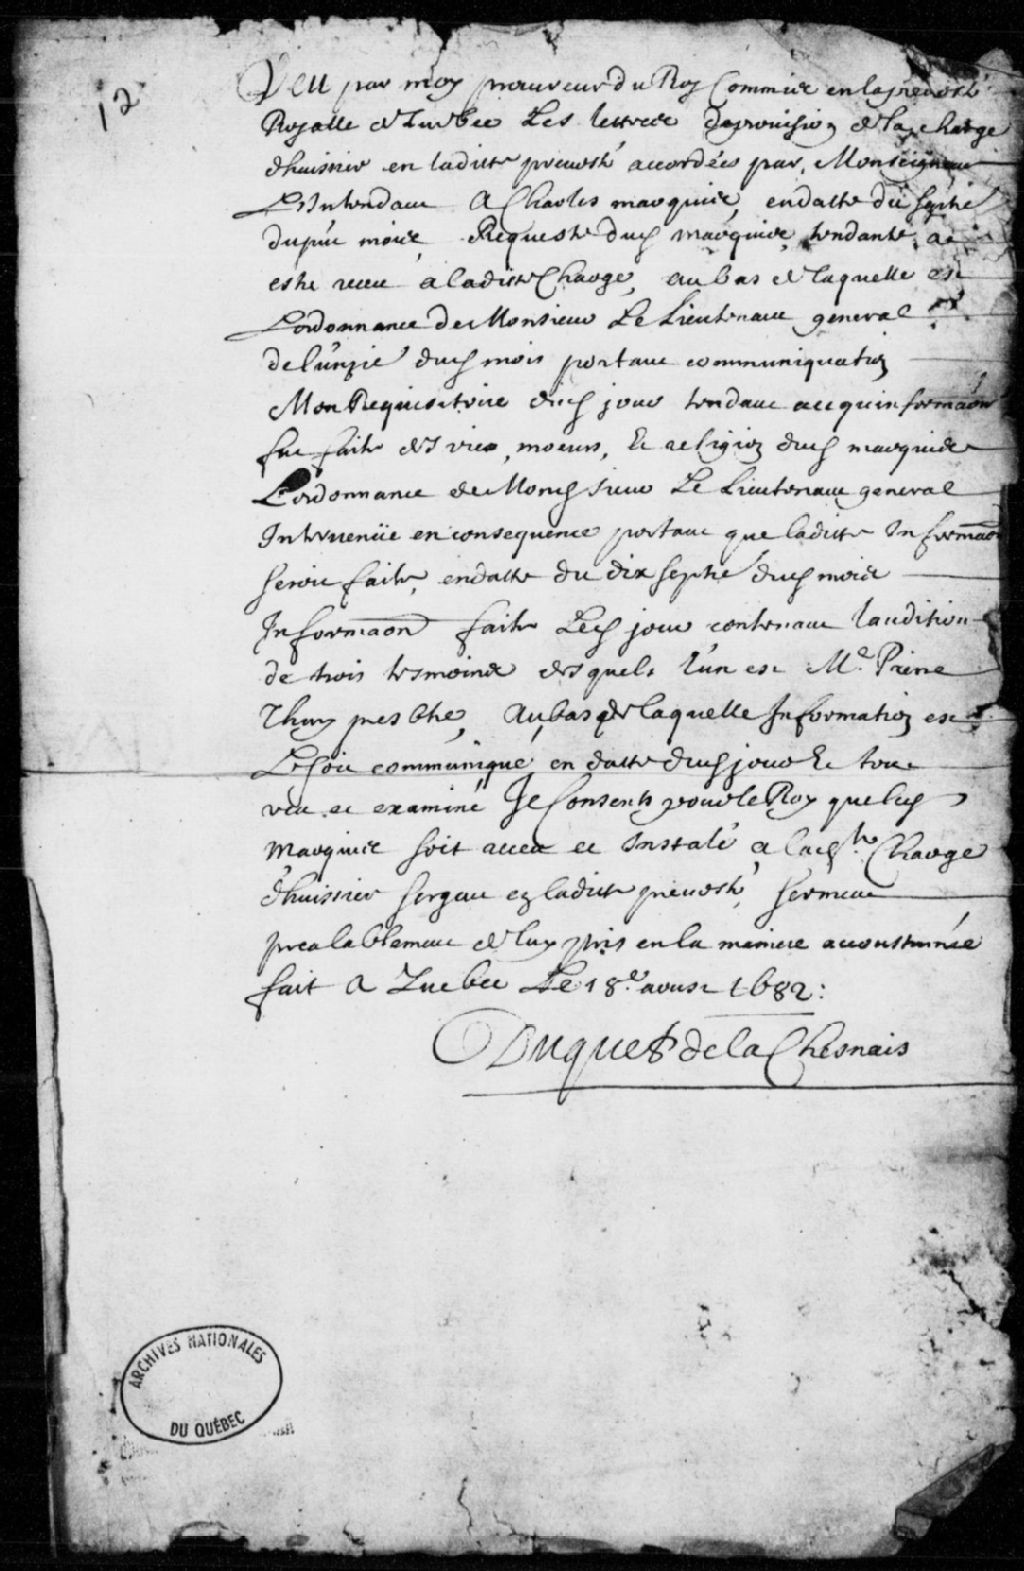 12
Veu par moy procureur du Roy Commis en la prevosté
Royalle de Quebec Les lettres de provision de la charge
d'huissier en laditte prevosté accordées par Monseigneur
L'Intendant A Charles marquis, en datte du septie
du pnt mois Requeste dud marquis, tendante, a
estre receu a laditte Charge, au bas de laquelle est
L'ordonnance de Monsieur Le Lieutenant general
de l'unzie dud mois portant communiquation
Mon Requisitoire dud jour tendant a ce qu'informaõn
fut faite des vies, moeurs, Et religion dud marquis
L'ordonnance de Mond Sieur Le Lieutenant general
Intervenüe en consequence portant que laditte Informaõn
seroit faite, en datte du dix septie dud mois
Informaõn faite Led jour contenant l'audition
de trois tesmoins desquels l'un est Me Pierre
Thury presbtre, Au bas de laquelle Information est
Le soit communiqué en datte dud jour Et tout
veu et examiné Je Consents pour le Roy que led
Marquis soit receu et Instalé a lad.te Charge
d'huissier sergent en laditte prevosté, serment
prealablement de luy pris en la maniere accoustumée
fait A Quebec Le 18.e aoust 1682:
Duquet de la Chesnais
ARCHIVES NATIONALES
DU QUÉBEC